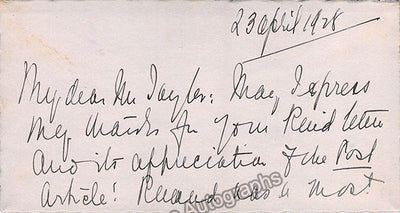 23 April 1928
My dear Mr Taylor: May I express
my thanks for your kind letter
and its appreciation of the Post
article! Renaud was a most
Autographs